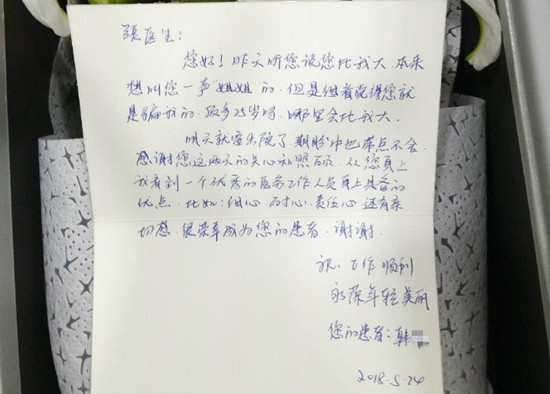 张医生：
您好！昨天听您说您比我大，本来
想叫您一声"姐姐"的，但是细看觉得您就
是骗我的，最多25岁吗，哪里会比我大。
明天就要出院了，期盼中也带点不舍，
感谢您这两天的关心和照顾，从您身上
我看到一个优秀的医务工作人员身上具备的
优点，比如：细心、耐心、责任心，还有亲
切感，很荣幸成为您的患者，谢谢。
祝：工作顺利
永葆年轻美丽
您的患者：韩
2018.5.24